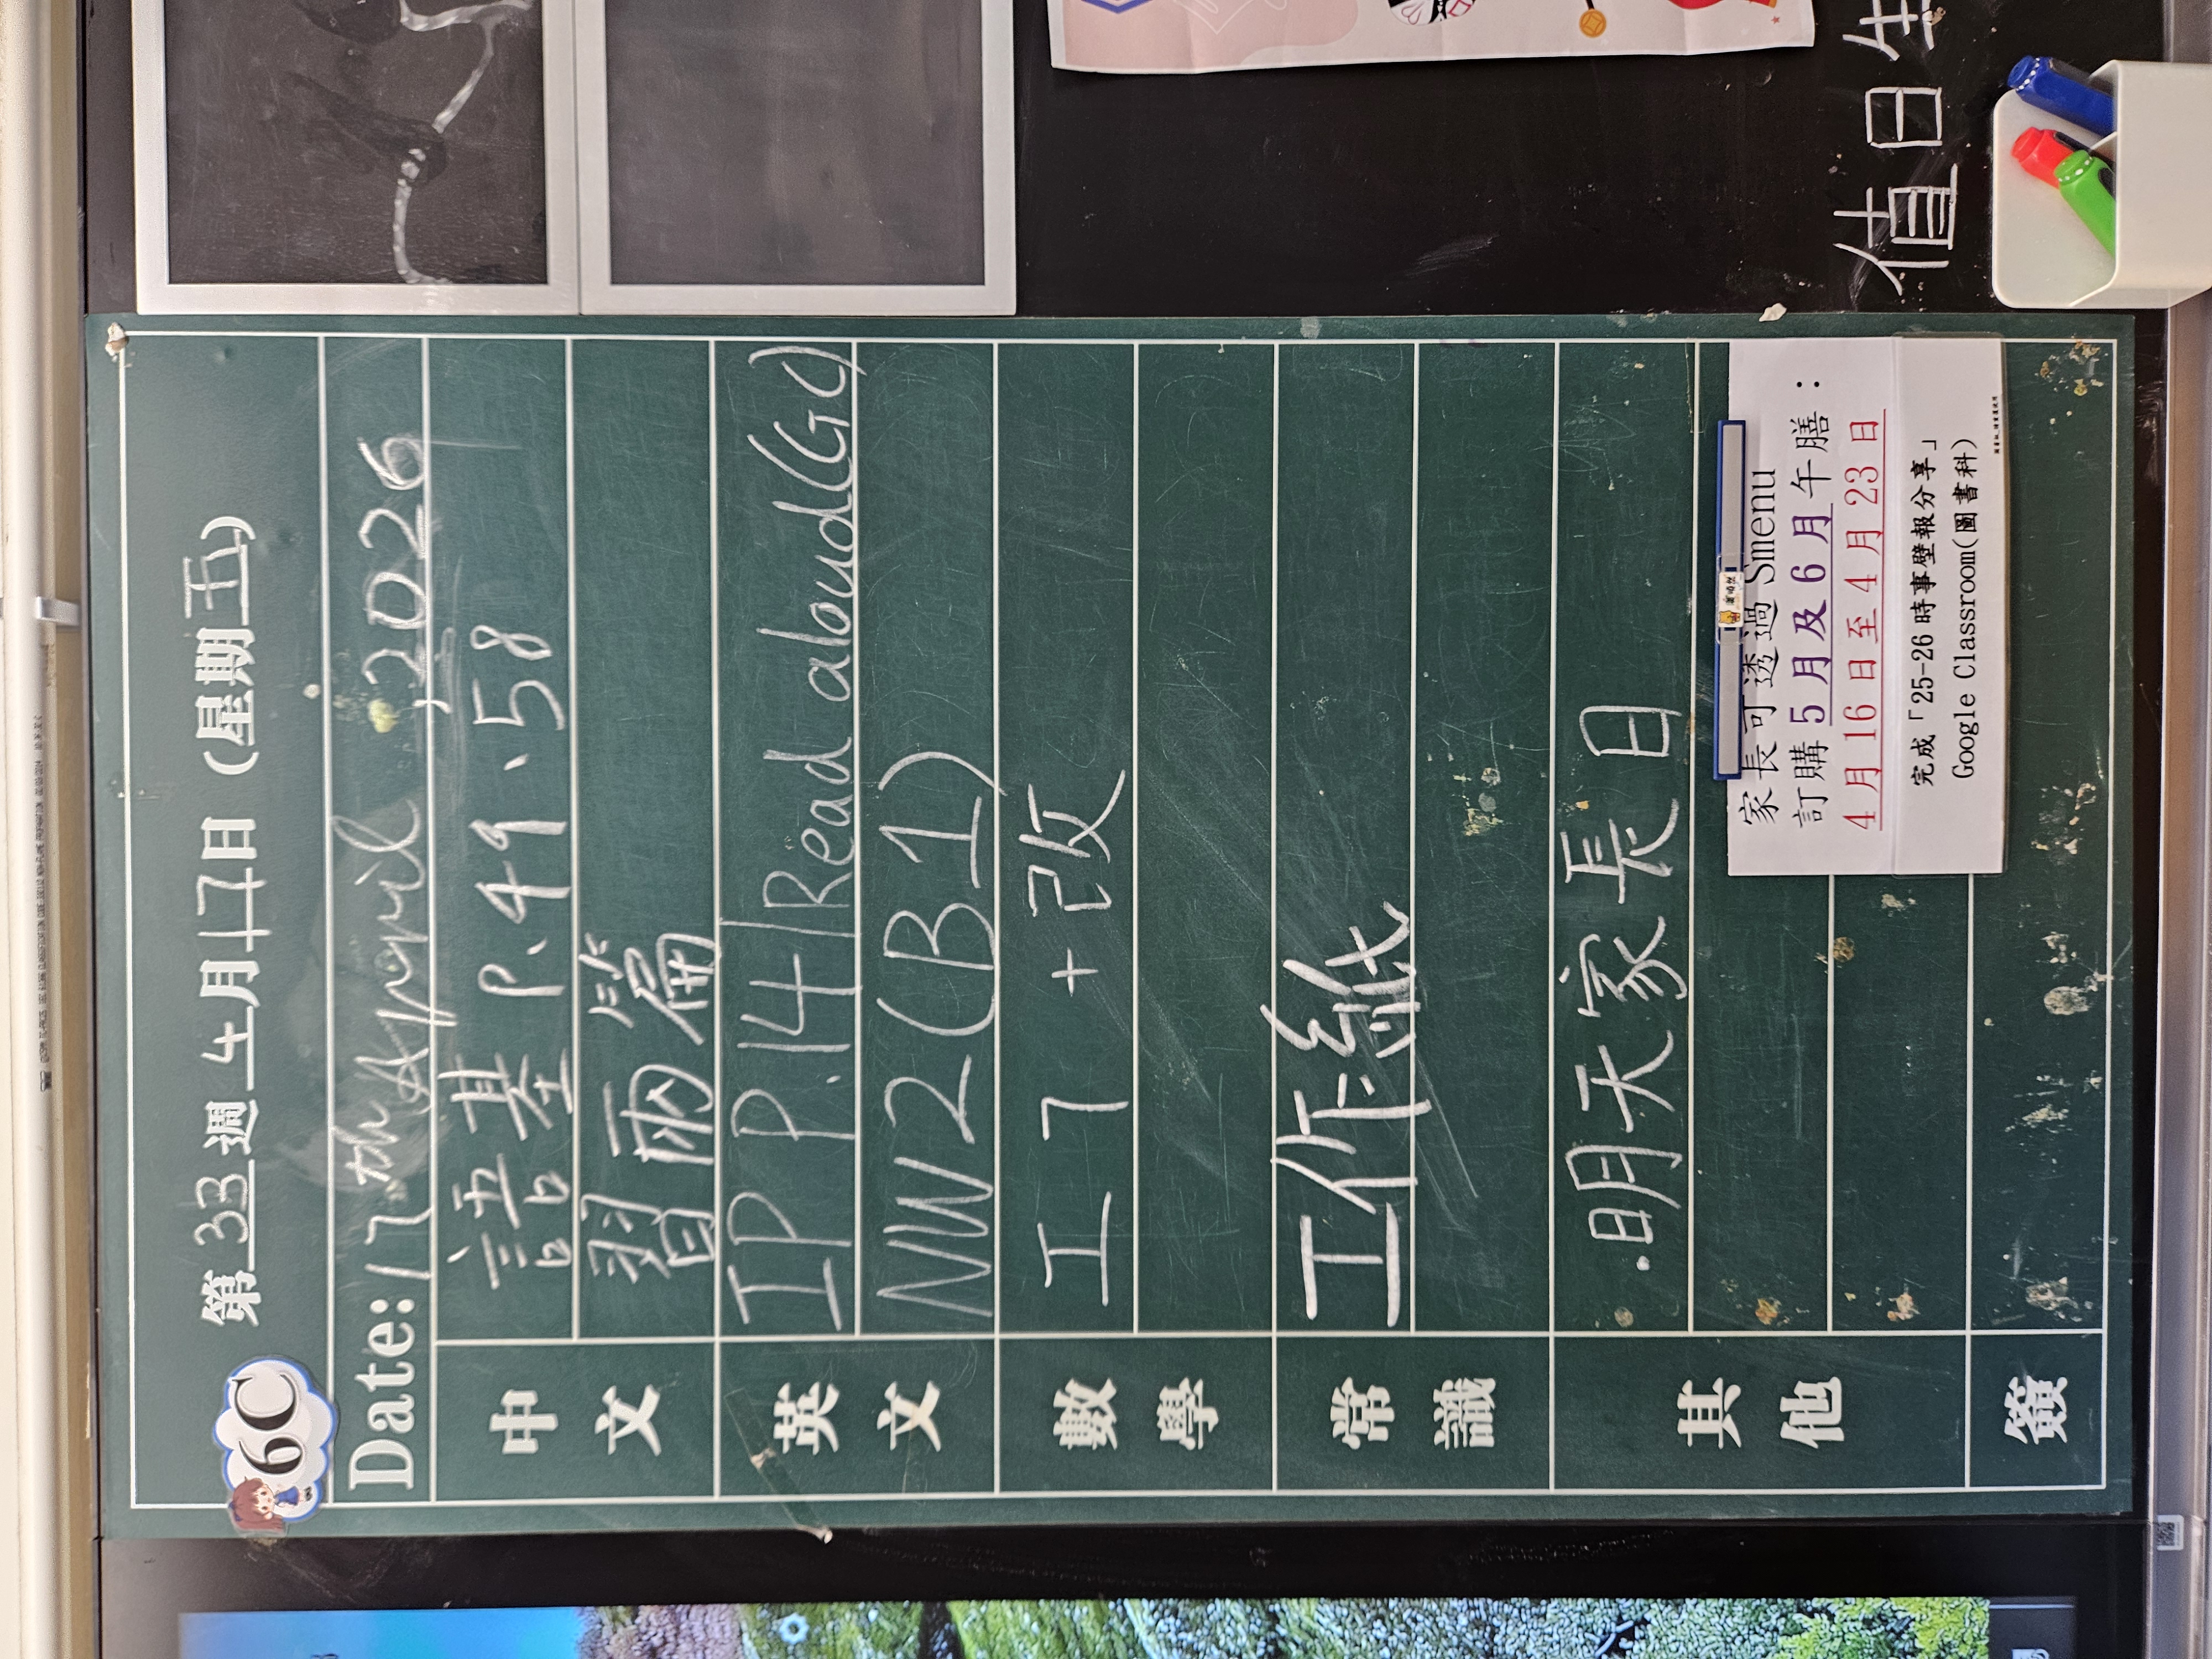 6C
第33週 4月17日 (星期五)
Date: 17th April, 2026
中文
語基 P.49、58
習兩篇
英文
IP P.14 | Read aloud(GC)
NW2(B1)
數學
工7 + 改
常識
工作紙
其他
·明天家長日
家長可透過 Smenu
訂購 5月及6月午膳：
4月16日至4月23日
完成「25-26時事壁報分享」
Google Classroom(圖書科)
簽
值日生